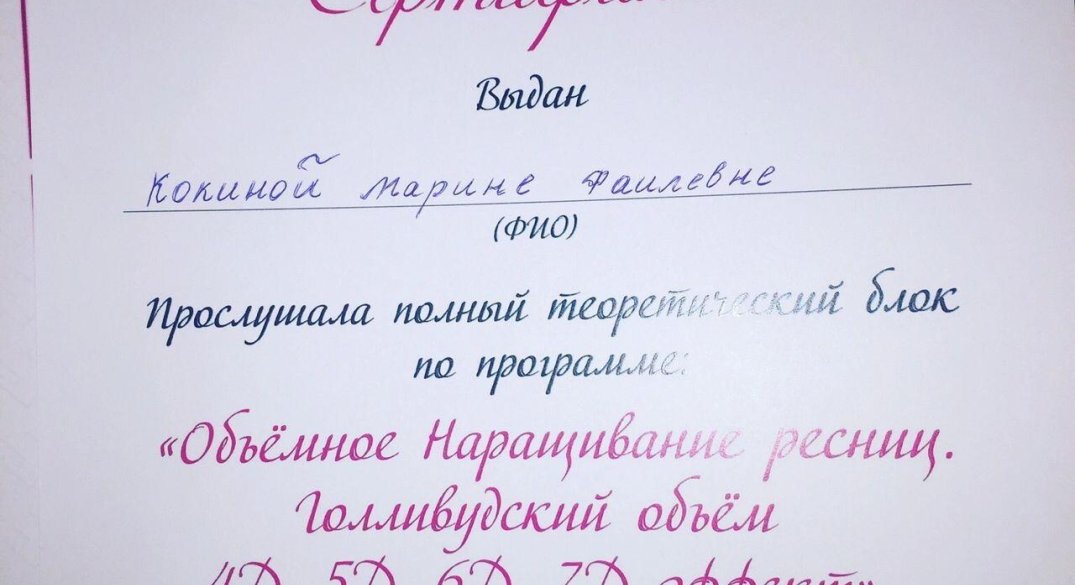 Сертификат
Выдан
Кокиной Марине Фаилевне
(ФИО)
Прослушала полный теоретический блок
по программе:
«Объёмное Наращивание ресниц.
Голливудский объём
4D, 5D, 6D, 7D эффект»